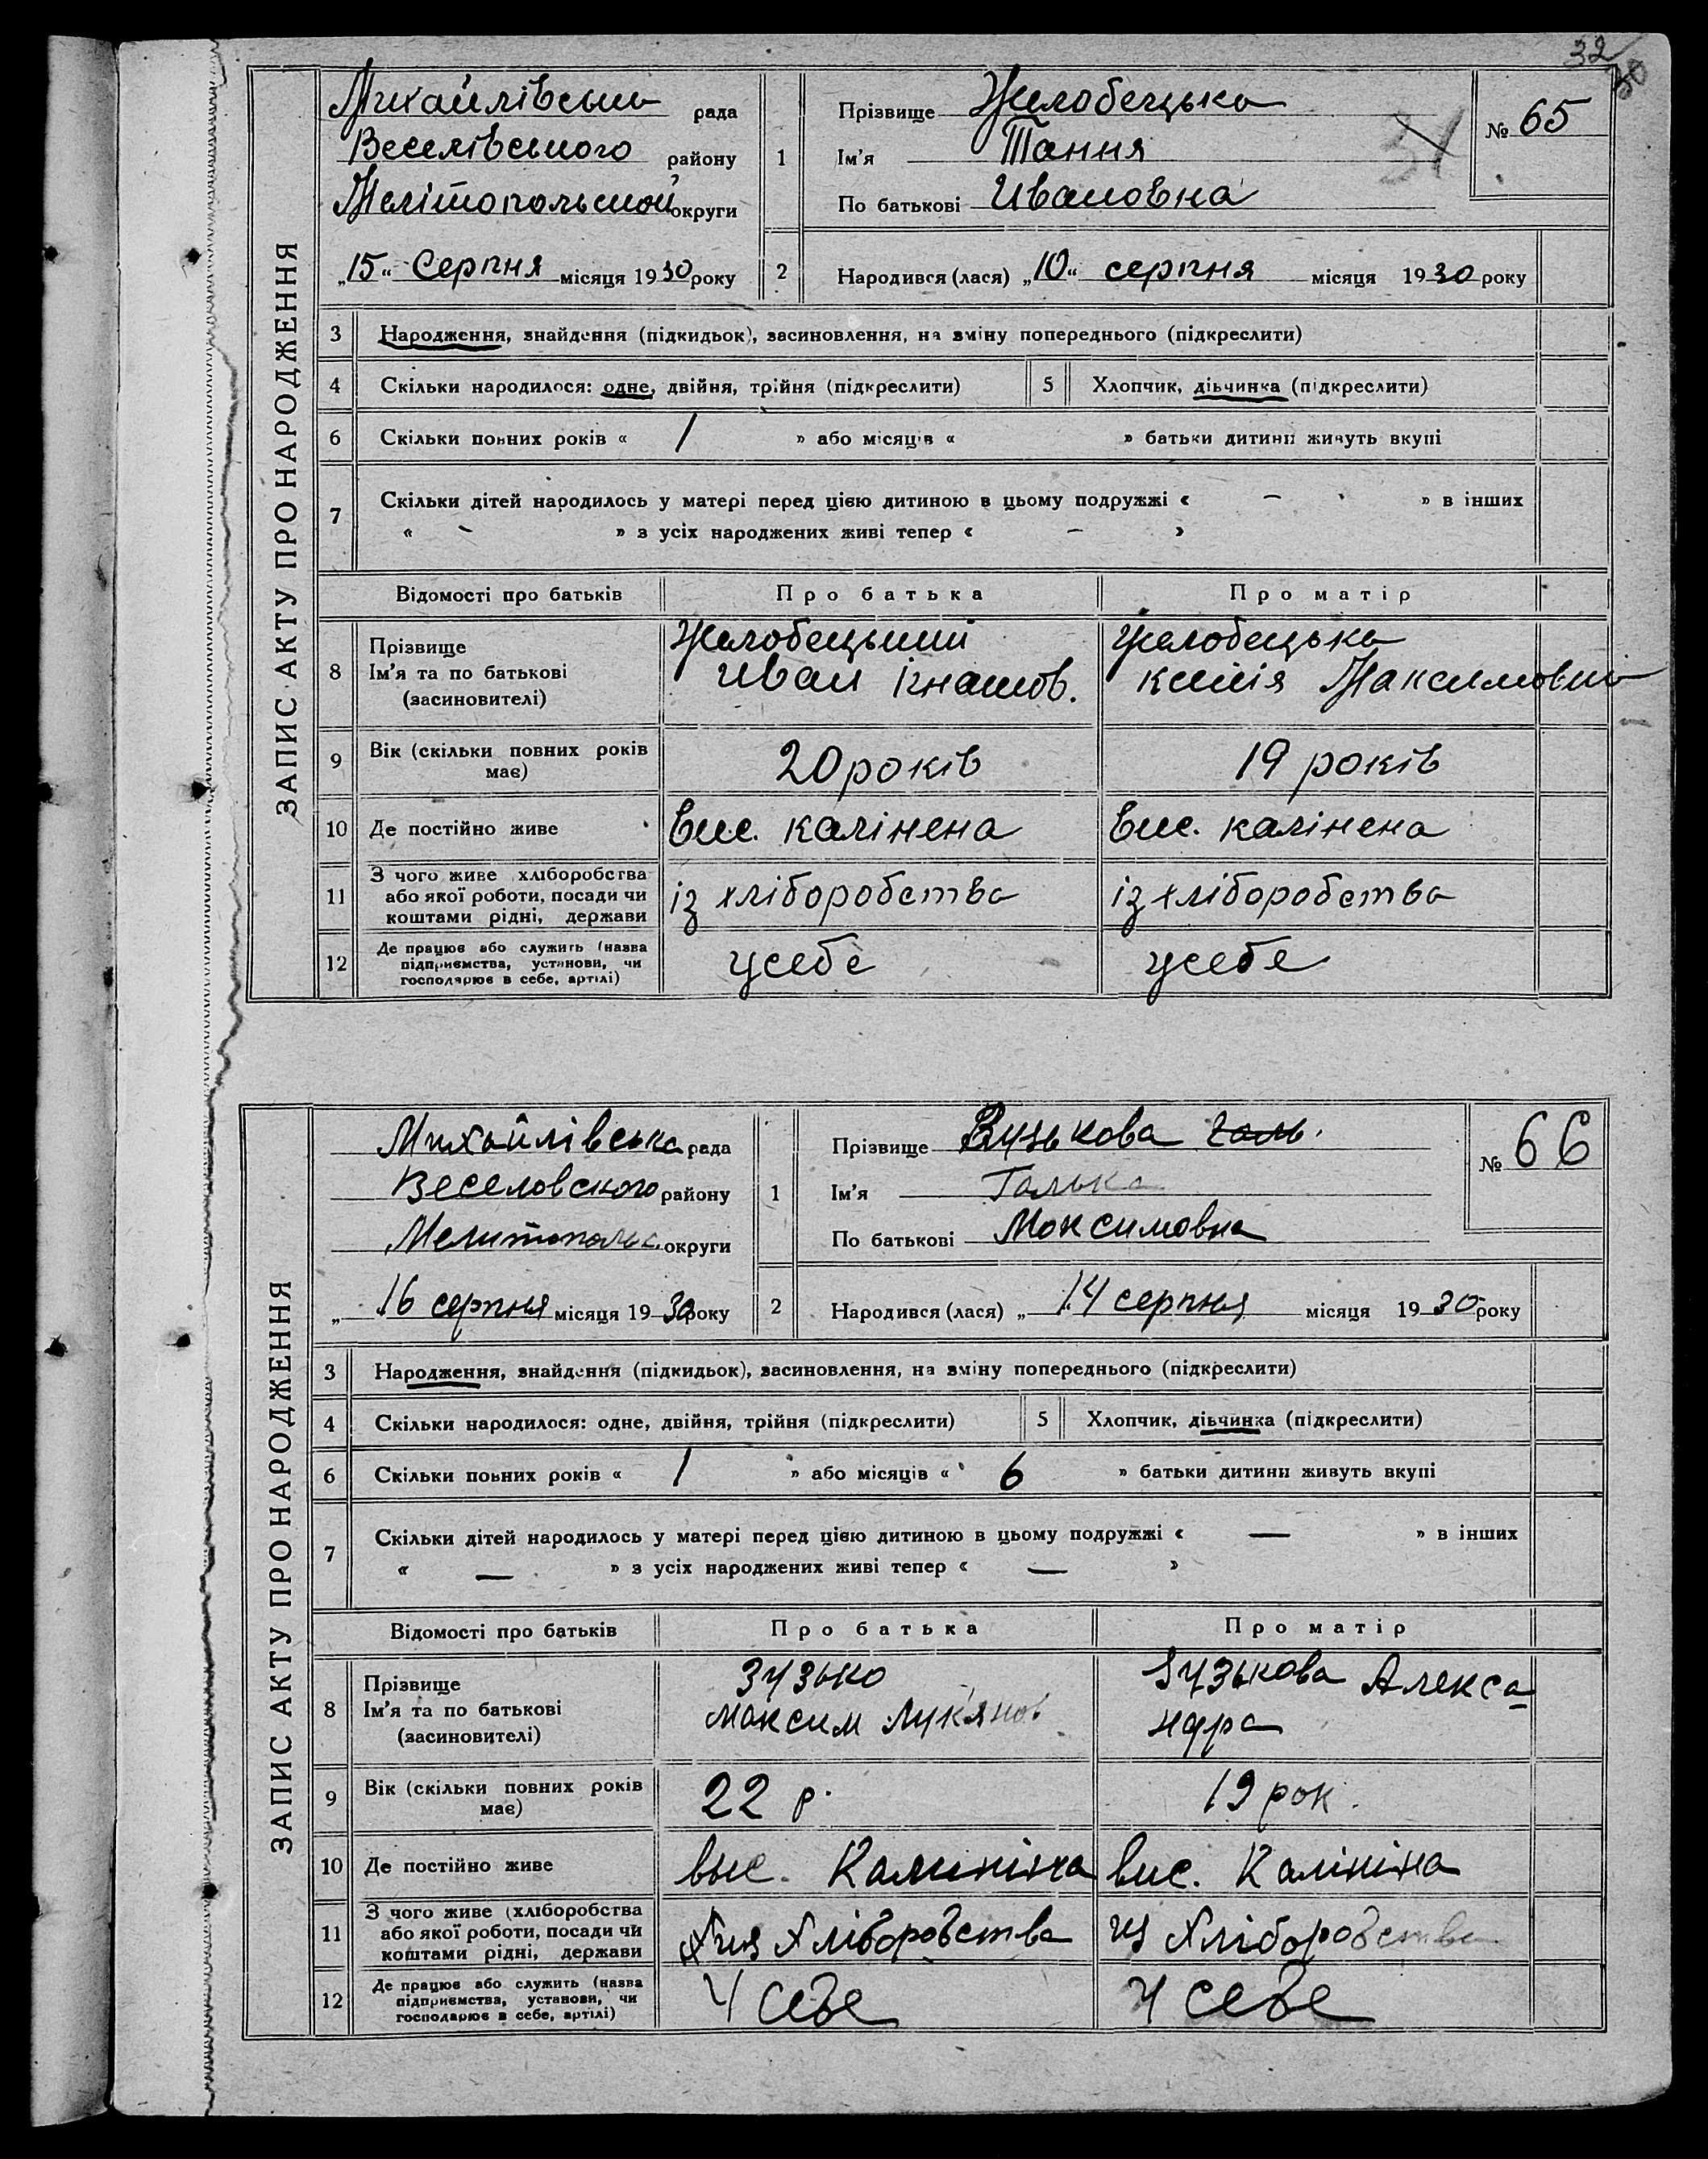 32
30
31
ЗАПИС АКТУ ПРО НАРОДЖЕННЯ
Михайлівська рада
Веселівського району
Мелітопольской округи
„15“ Серпня місяця 1930 року
1
Прізвище Желобецька
Ім'я Тання
По батькові Ивановна
№ 65
2
Народився (лася) „10“ серпня місяця 1930 року
3 Народження, знайдення (підкидьок), засиновлення, на зміну попереднього (підкреслити)
4 Скільки народилося: одне, двійня, трійня (підкреслити) 5 Хлопчик, дівчинка (підкреслити)
6 Скільки повних років « 1 » або місяців « » батьки дитини живуть вкупі
7 Скільки дітей народилось у матері перед цією дитиною в цьому подружжі « – » в інших
« – » з усіх народжених живі тепер « – »
Відомості про батьків Про батька Про матір
8 Прізвище
Ім'я та по батькові
(засиновителі)
Желобецький
Иван Ігнатов.
Желобецька
Максимовна
9 Вік (скільки повних років має) 20 років 19 років
10 Де постійно живе вис. калінена вис. калінена
11 З чого живе хліборобства
або якої роботи, посади чи
коштами рідні, держави
із хліборобства із хліборобства
12 Де працює або служить (назва
підприємства, установи, чи
господарює в себе, артілі)
усебе усебе
ЗАПИС АКТУ ПРО НАРОДЖЕННЯ
Михайлівська рада
Веселовского району
Мелитопольс. округи
„ 16 серпня місяця 1930 року
1
Прізвище Зузькова Галь.
Ім'я Галька
По батькові Максимовна
№ 66
2
Народився (лася) „ 14 серпня місяця 1930 року
3 Народження, знайдення (підкидьок), засиновлення, на зміну попереднього (підкреслити)
4 Скільки народилося: одне, двійня, трійня (підкреслити) 5 Хлопчик, дівчинка (підкреслити)
6 Скільки повних років « 1 » або місяців « 6 » батьки дитини живуть вкупі
7 Скільки дітей народилось у матері перед цією дитиною в цьому подружжі « — » в інших
« — » з усіх народжених живі тепер « — »
Відомості про батьків Про батька Про матір
8 Прізвище
Ім'я та по батькові
(засиновителі)
Зузько
Максим Лук'янов
Зузькова Алекса
ндра
9 Вік (скільки повних років має) 22 р. 19 рок.
10 Де постійно живе выс. Калиніна вис. Калініна
11 З чого живе (хліборобства
або якої роботи, посади чи
коштами рідні, держави
из Хліборобства из Хліборобства
12 Де працює або служить (назва
підприємства, установи, чи
господарює в себе, артілі)
У себе У себе